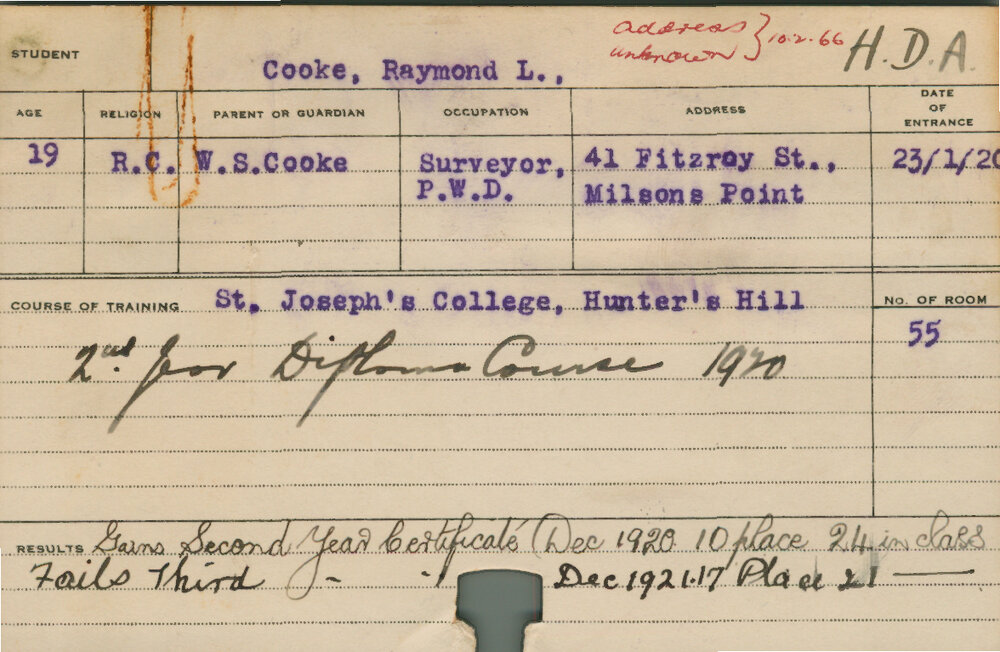 address } 10.2.66
unknown
H.D.A.
STUDENT
Cooke, Raymond L.,
AGE
RELIGION
PARENT OR GUARDIAN
OCCUPATION
ADDRESS
DATE
OF
ENTRANCE
19
R.C.
W.S.Cooke
Surveyor,
P.W.D.
41 Fitzroy St.,
Milsons Point
23/1/20
COURSE OF TRAINING St. Joseph's College, Hunter's Hill
No. OF ROOM
55
2nd. Year Diploma Course 1920
RESULTS Gains Second Year Certificate (Dec 1920. 10 place 24 in class
Fails Third - " Dec 1921.17 Place 21 —